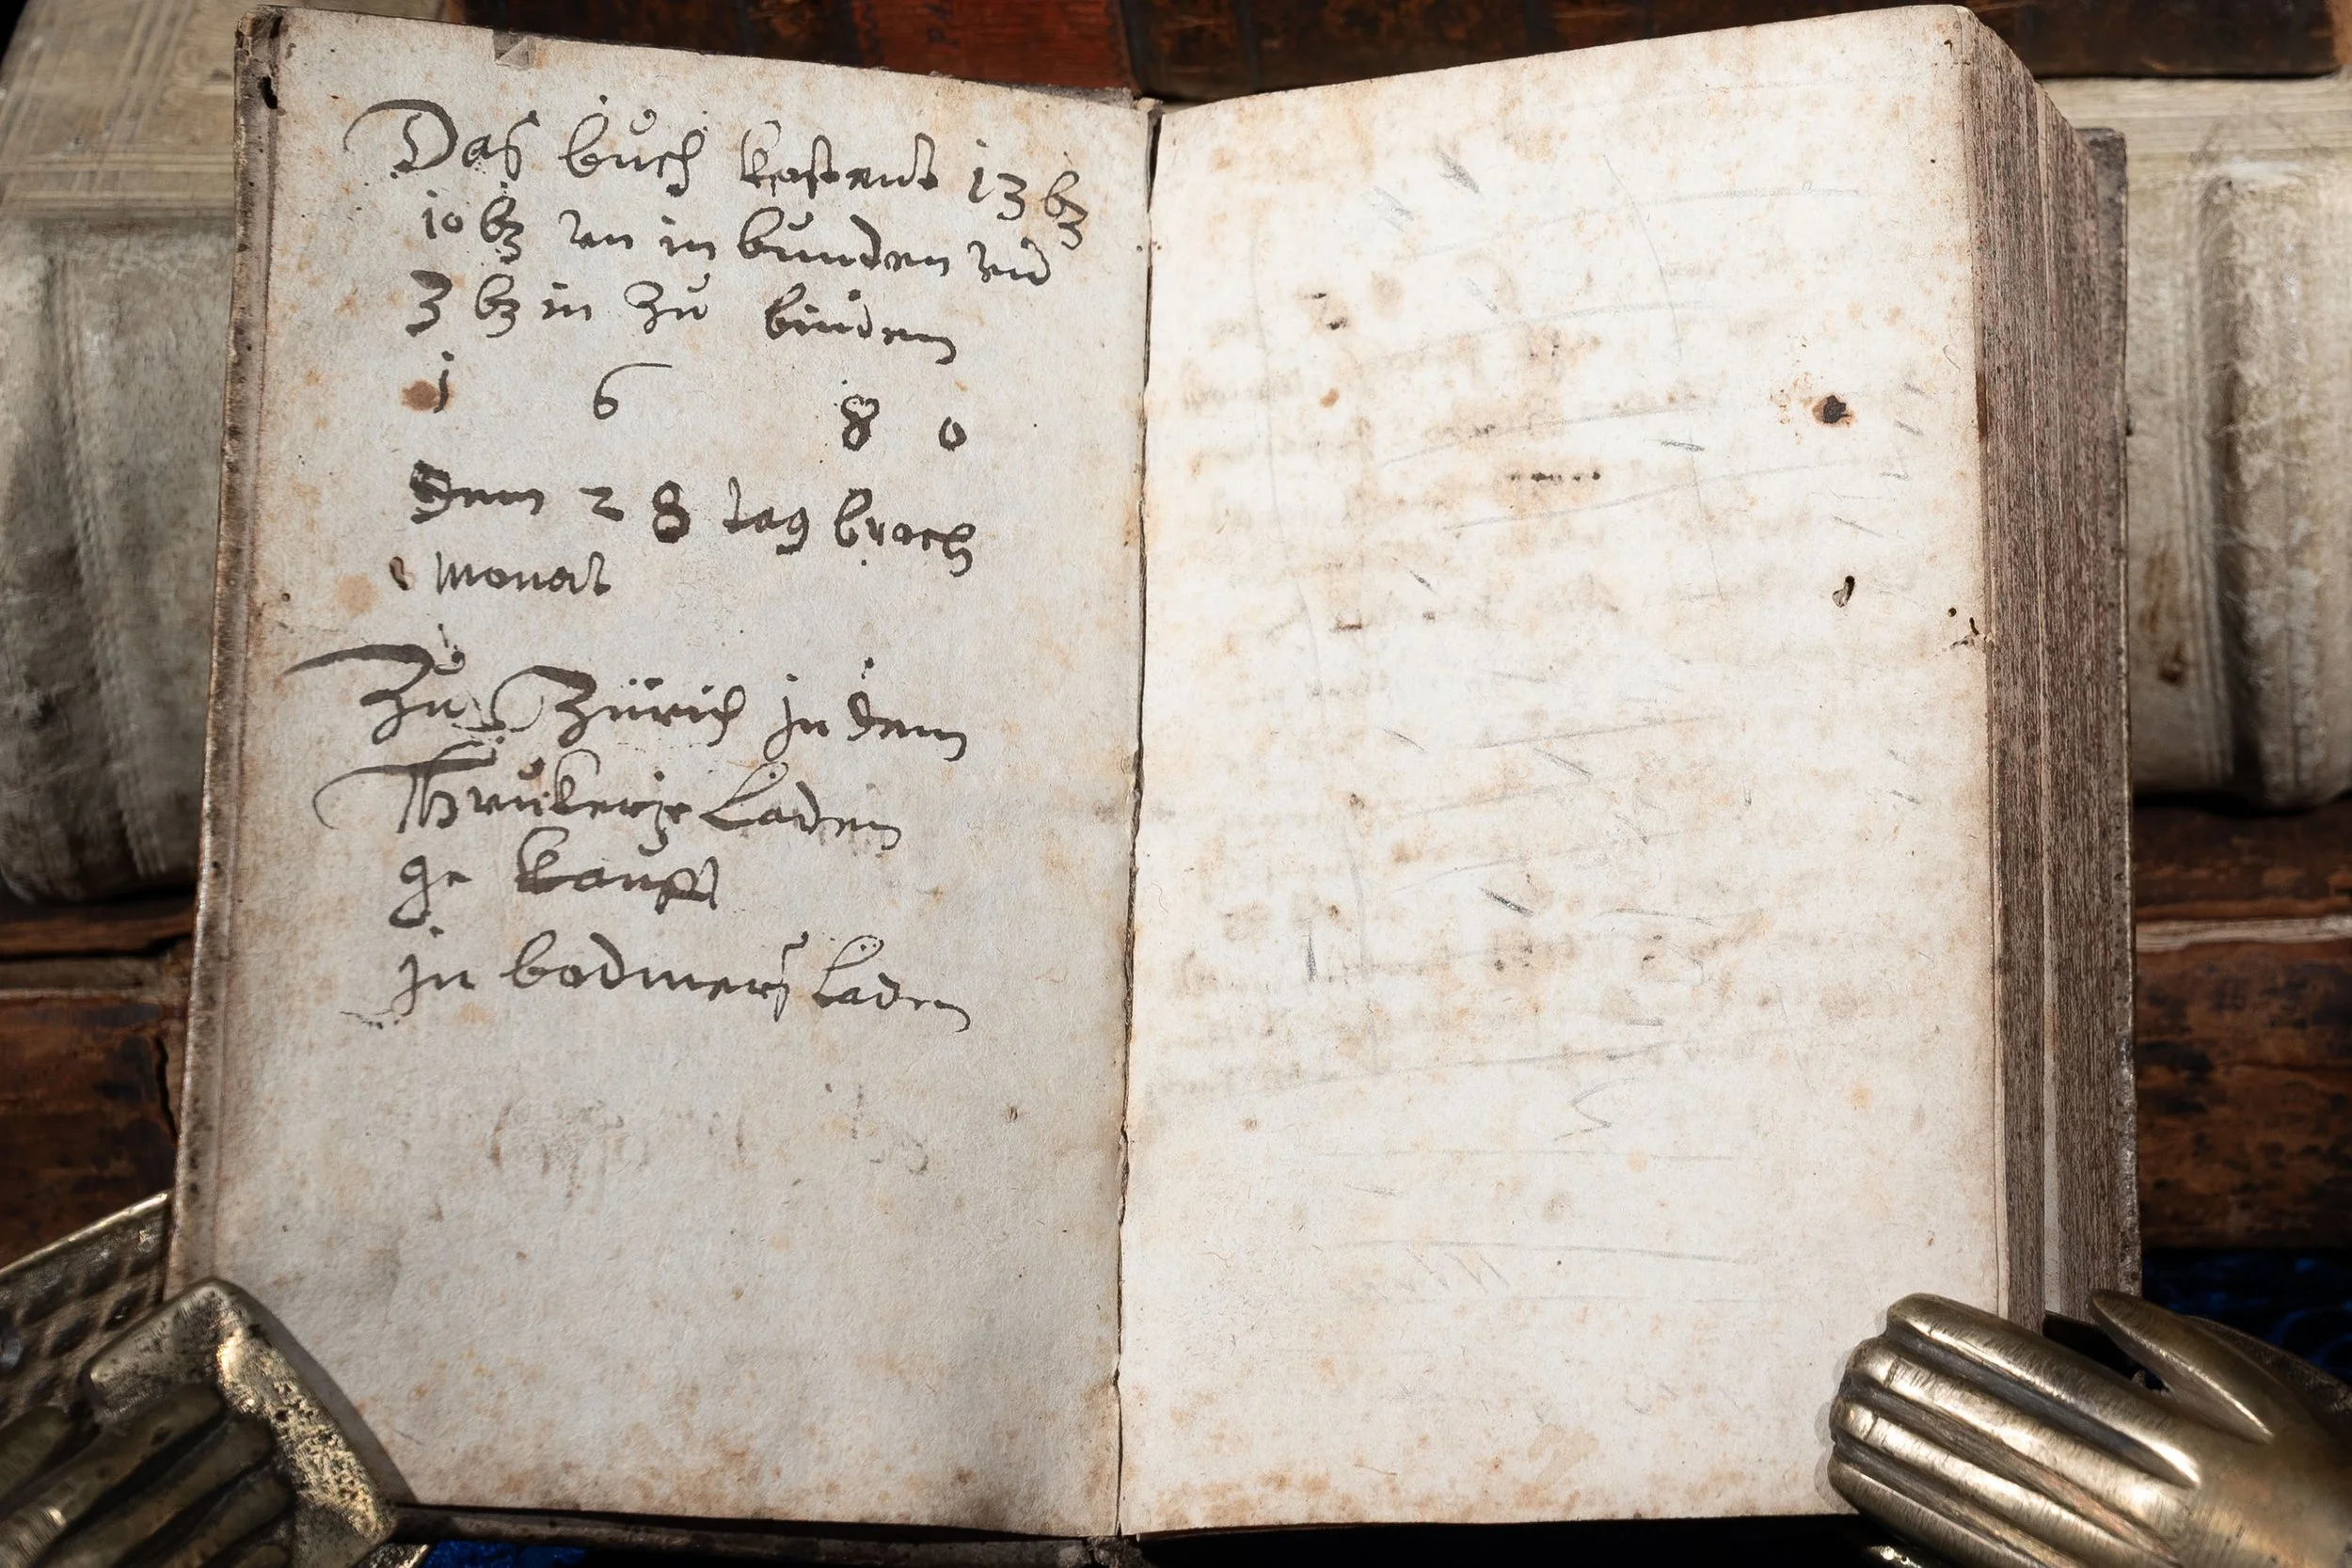 Das bůch kostent 13 bz
10 bz un in bunden und
3 bz in zů binden
1 6 8 0
Dem 28 tag brach
monat
Zů Zürich jn dem
Thrůkerye Laden
ge kaufft
jn bodmers Laden